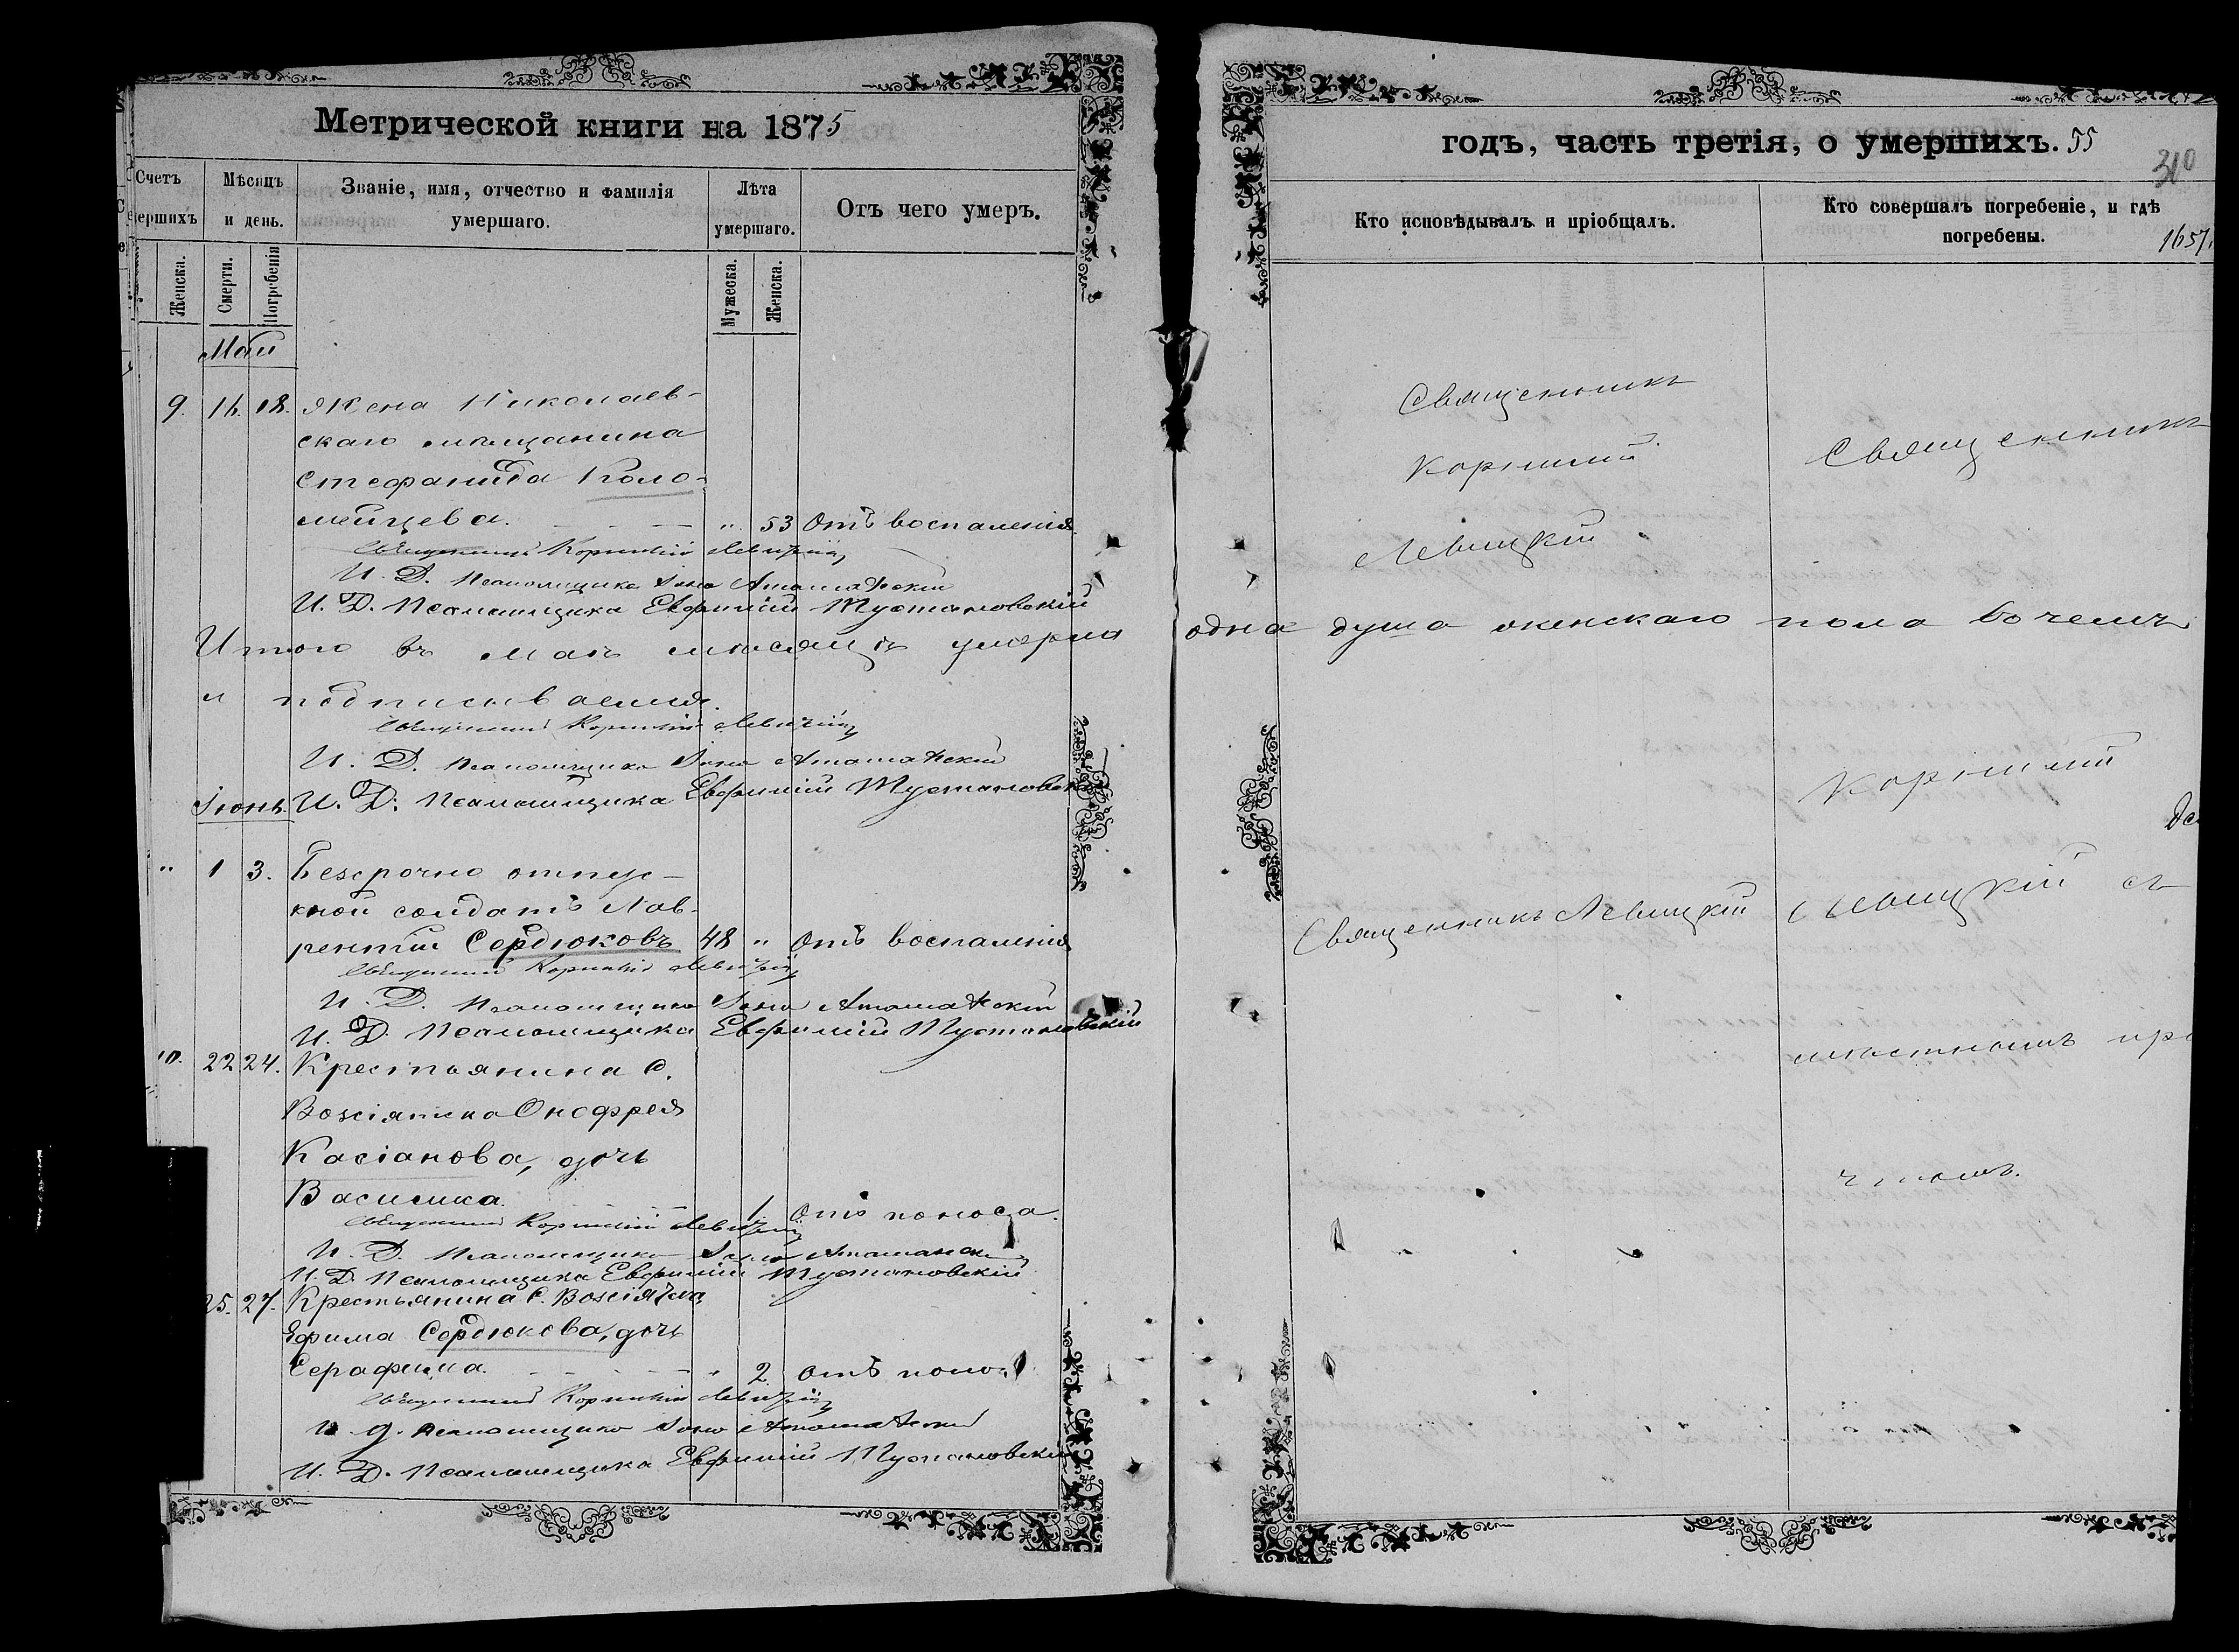 Метрической книги на 1875
Счетъ
ершихъ
Женска.
Мѣсяцъ
и день.
Смерти.
Погребенія
Званіе, имя, отчество и фамилія
умершаго.
Лѣта
умершаго.
Мужеска.
Женска.
Отъ чего умеръ.
Май
9. 16. 18. Жена Николаев-
скаго мѣщанина
Стефанида Коло-
мейцева. " 53 Отъ воспаленія
Священникъ Корнилій Левицкій
И. Д. Псаломщика
И. Д. Псаломщика Евфимій Тустановскій
Итого въ Маѣ мѣсяцѣ умерла
и подписываемся.
Священникъ Корнилій Левицкій
И. Д. Псаломщика
Іюнь. И. Д. Псаломщика Евфимій Тустановскій
" 1 3. Безсрочно отпус-
кной солдатъ Лав-
рентій Сердюковъ 48 " Отъ воспаленія
Священникъ Корнилій Левицкій
И. Д. Псаломщика
И. Д. Псаломщика Евфимій Тустановскій
10. 22 24. Крестьянина С.
Возсіятска Онофрея
Касіанова, дочь
Василиса. 1 Отъ поноса.
Священникъ Корнилій Левицкій
И. Д. Псаломщика
И. Д. Псаломщика Евфимій Тустановскій
25. 27. Крестьянина С. Возсіятска,
Ефима Сердюкова, дочь
Серафима. " 2. отъ поно
Священникъ Корнилій Левицкій
и. д. псаломщика
И. Д. Псаломщика Евфимій Тустановскій
годъ, часть третія, о умершихъ. 55
310
Кто исповѣдывалъ и пріобщалъ.
Кто совершалъ погребеніе, и гдѣ
погребены.
1657
Священникъ
Корнилій
Левицкій
Священникъ
одна душа женскаго пола въ чемъ
Корнилій
Священникъ Левицкій
Левицкій на
мѣстномъ